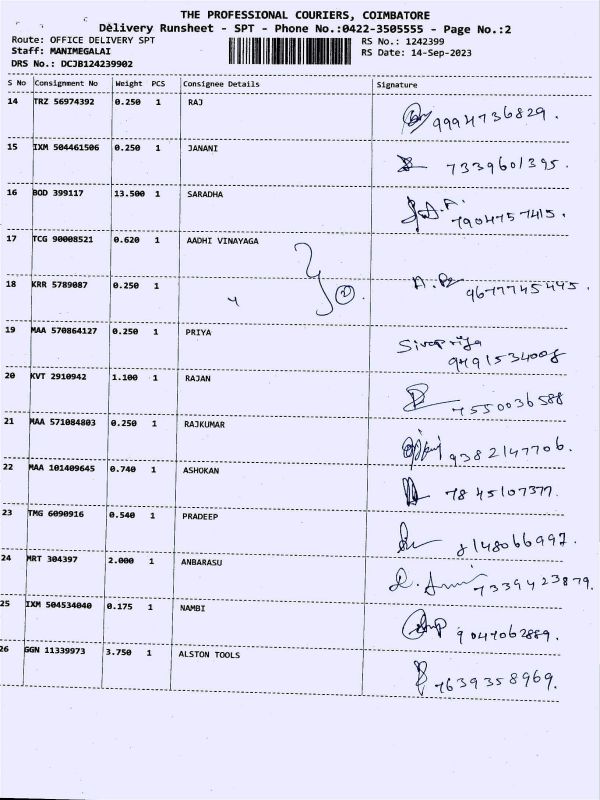 THE PROFESSIONAL COURIERS, COIMBATORE
Delivery Runsheet - SPT - Phone No.:0422-3505555 - Page No.:2
Route: OFFICE DELIVERY SPT RS No.: 1242399
Staff: MANIMEGALAI RS Date: 14-Sep-2023
DRS No.: DCJB124239902
S No Consignment No Weight PCS Consignee Details Signature
14 TRZ 56974392 0.250 1 RAJ 9994736829.
15 IXM 504461506 0.250 1 JANANI 7339601395.
16 BOD 399117 13.500 1 SARADHA 7904757415.
17 TCG 90008521 0.620 1 AADHI VINAYAGA
18 KRR 5789087 0.250 1 " 2 9677745445.
19 MAA 570864127 0.250 1 PRIYA Sivapriya 9791534008
20 KVT 2910942 1.100 1 RAJAN 7550036588
21 MAA 571084803 0.250 1 RAJKUMAR 9382147706.
22 MAA 101409645 0.740 1 ASHOKAN 7845107377.
23 TMG 6090916 0.540 1 PRADEEP 8148066997.
24 MRT 304397 2.000 1 ANBARASU 7339423879.
25 IXM 504534040 0.175 1 NAMBI 9047062889.
26 GGN 11339973 3.750 1 ALSTON TOOLS 7639358969.